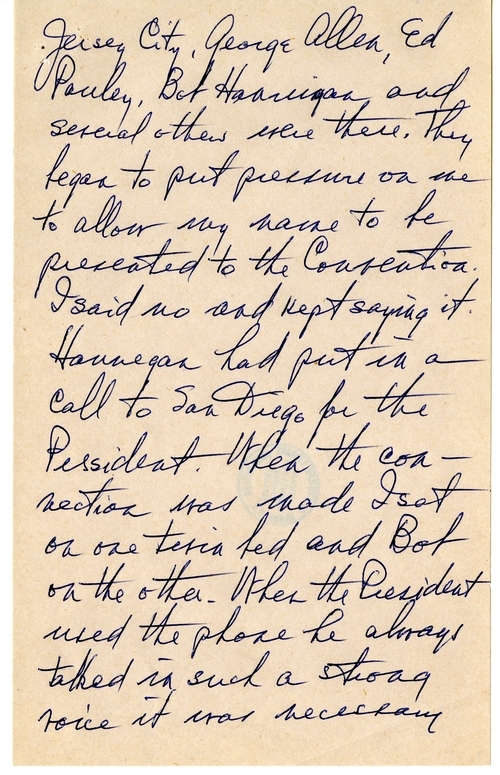 Jersey City, George Allen, Ed
Pauley, Bob Hannigan and
several others were there. They
began to put pressure on me
to allow my name to be
presented to the Convention.
I said no and kept saying it.
Hannegan had put in a
call to San Diego for the
President. When the con-
nection was made I sat
on one twin bed and Bob
on the other. When the President
used the phone he always
talked in such a strong
voice it was necessary